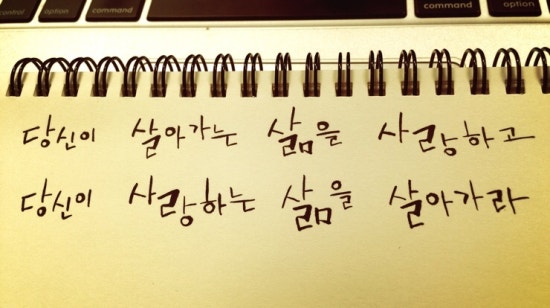 control option command command option
당신이 살아가는 삶을 사랑하고
당신이 사랑하는 삶을 살아가라